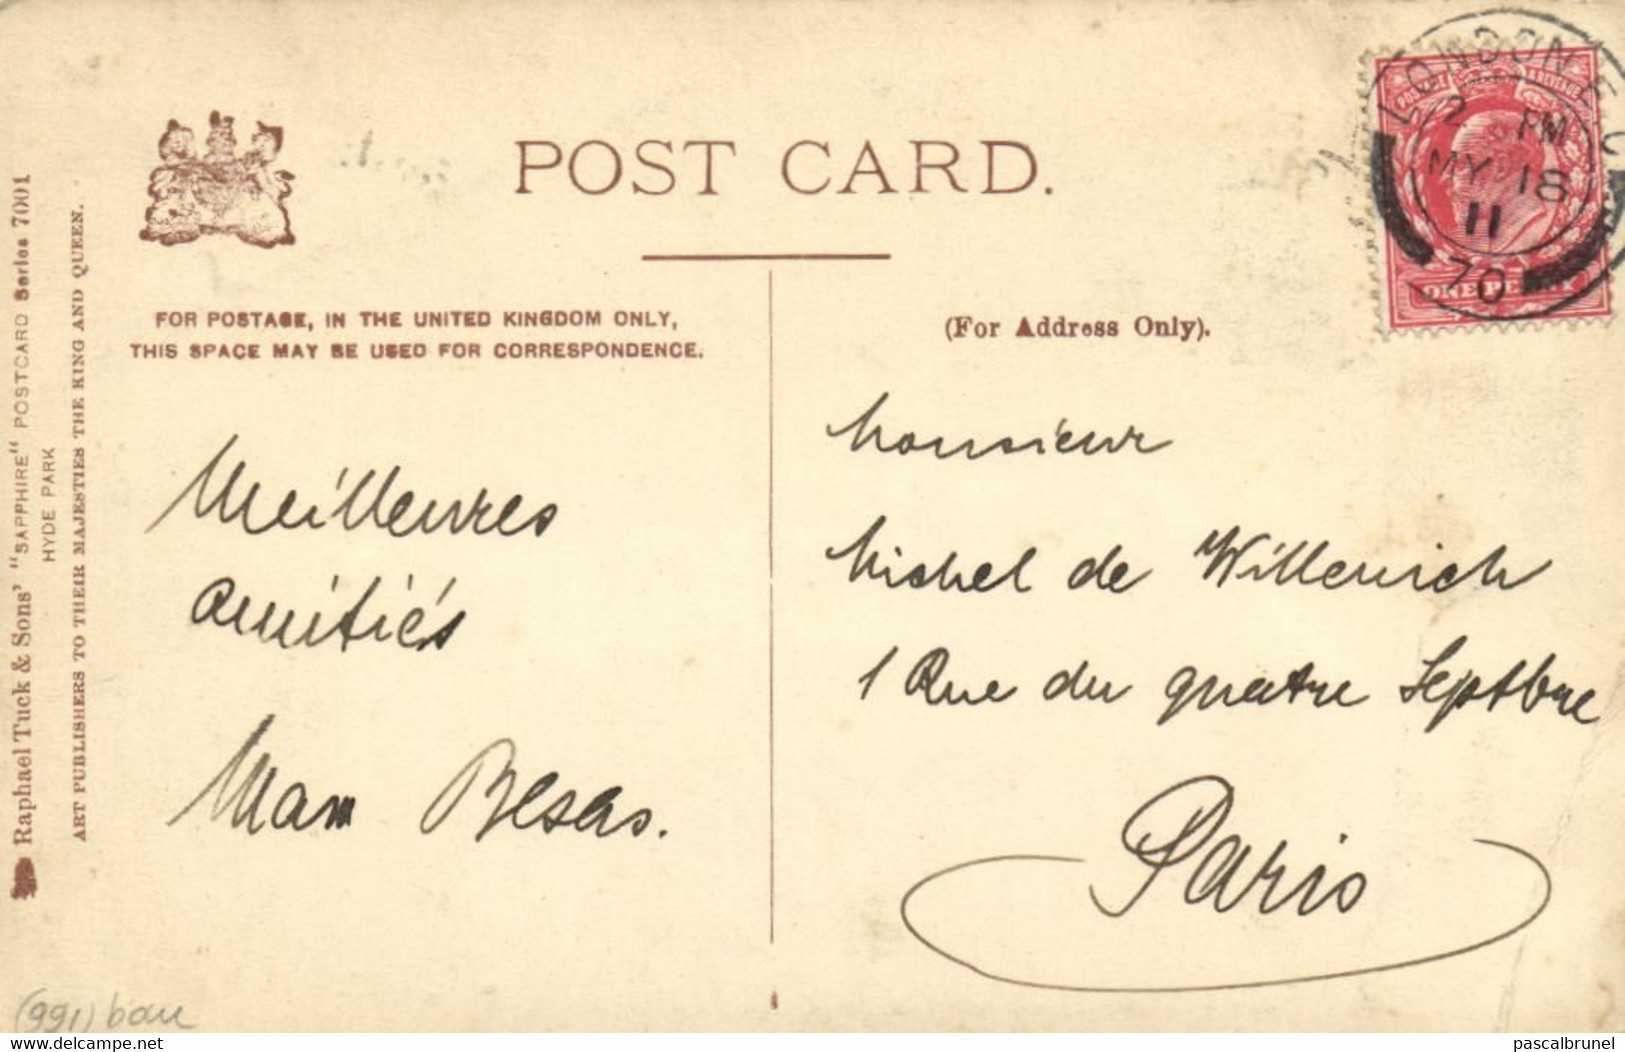 POST CARD.
FOR POSTAGE, IN THE UNITED KINGDOM ONLY,
THIS SPACE MAY BE USED FOR CORRESPONDENCE.
(For Address Only).
LONDON E.C
2 PM
MY 18
11
70
POSTAGE & REVENUE
ONE PENNY
Raphael Tuck & Sons' "SAPPHIRE" POSTCARD Series 7001
HYDE PARK
ART PUBLISHERS TO THEIR MAJESTIES THE KING AND QUEEN.
Meilleures
amitiés
Besas.
Monsieur
Michel de Willenich
1 Rue du quatre Septbre
Paris
(991) bau
www.delcampe.net
pascalbrunel